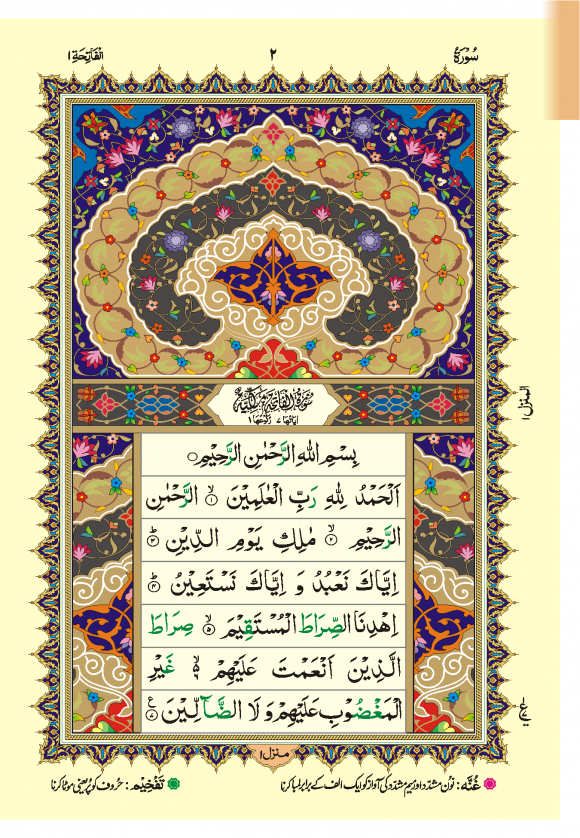 سُوْرَةُ ٢ اَلْفَاتِحَةِ ١
سُوْرَةُ الْفَاتِحَةِ مَكِّيَّةٌ
اٰيَاتُهَا ٧ رُكُوْعُهَا ١
بِسْمِ اللّٰهِ الرَّحْمٰنِ الرَّحِيْمِ ○
اَلْحَمْدُ لِلّٰهِ رَبِّ الْعٰلَمِيْنَ ۙ﴿١﴾ الرَّحْمٰنِ
الرَّحِيْمِ ۙ﴿٢﴾ مٰلِكِ يَوْمِ الدِّيْنِ ؕ﴿٣﴾
اِيَّاكَ نَعْبُدُ وَ اِيَّاكَ نَسْتَعِيْنُ ؕ﴿٤﴾
اِهْدِنَا الصِّرَاطَ الْمُسْتَقِيْمَ ۙ﴿٥﴾ صِرَاطَ
الَّذِيْنَ اَنْعَمْتَ عَلَيْهِمْ ۙ۬ غَيْرِ
الْمَغْضُوْبِ عَلَيْهِمْ وَ لَا الضَّآلِّيْنَ ﴿٧﴾ ع
المنزل ١
منزل ١
غُنَّه: نون مشدّد اور میم مشدّد کی آواز کو ایک الف کے برابر لمبا کرنا تَفْخِيْم: حروف کو پُر یعنی موٹا کرنا